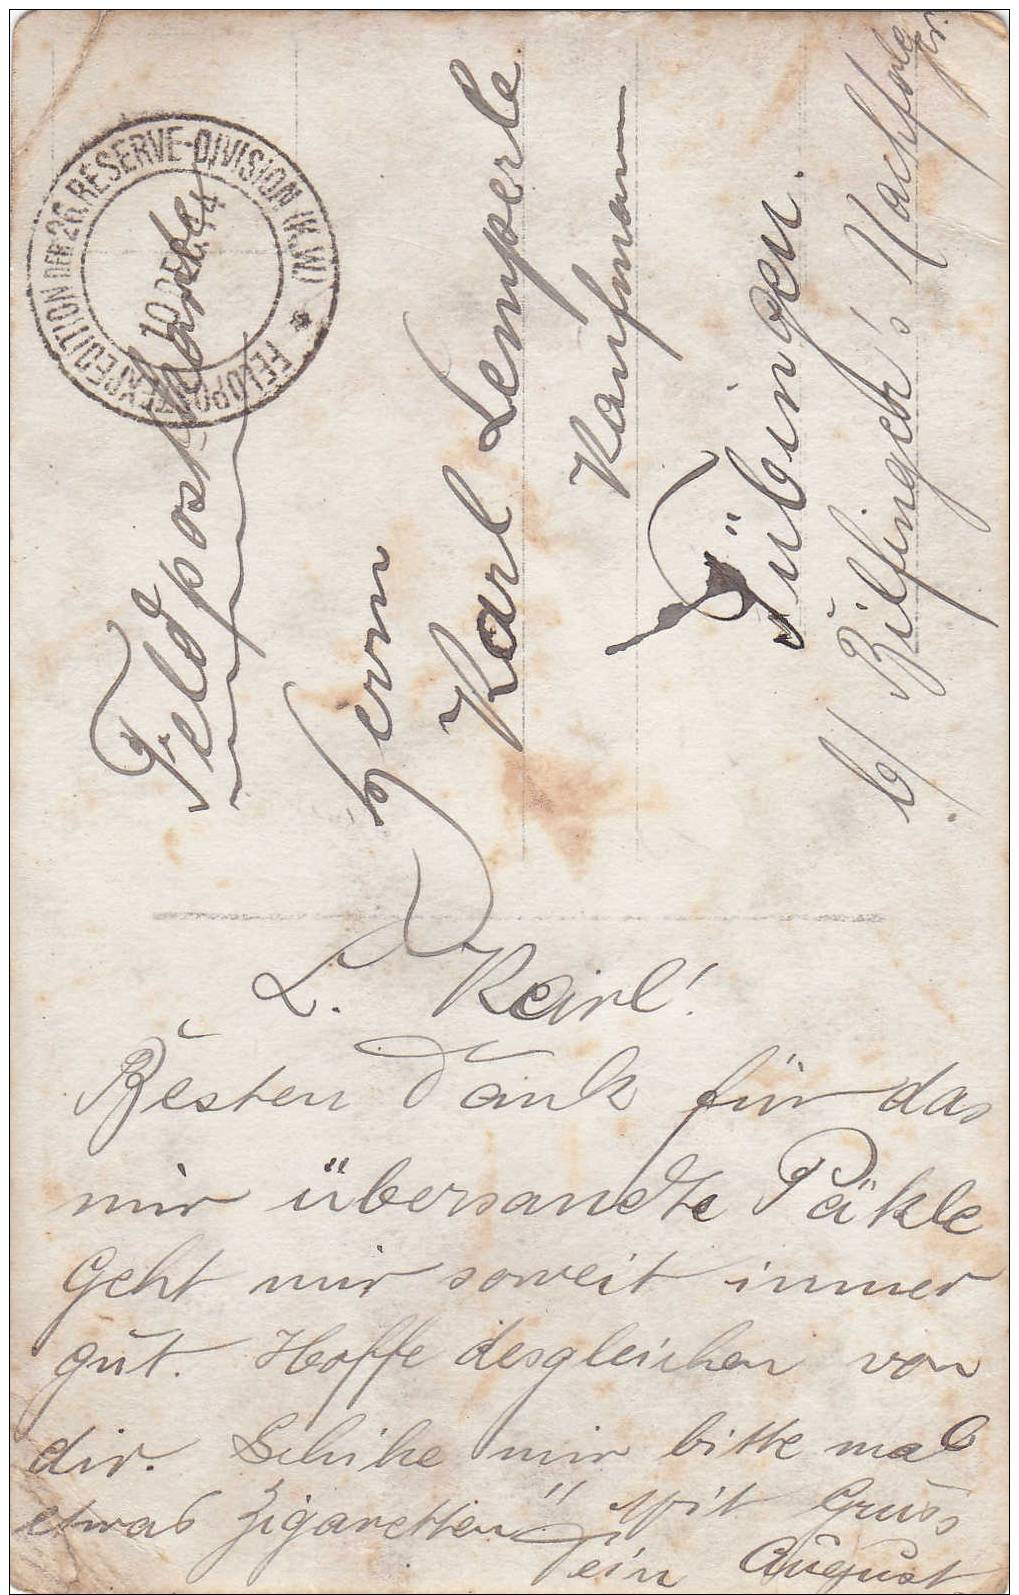 Feldpostkarte
FELDPOSTEXPEDITION DER 26. RESERVE-DIVISION (K.W.) *
10 DEZ. 14
Herrn
Karl Lemperle
Kaufmann
Tübingen.
b/ Bilfinger's Nachfolgr.
L. Karl!
Besten Dank für das
mir übersandte Päkle
Geht mir soweit immer
gut. Hoffe desgleichen von
dir. Schike mir bitte mal
etwas Zigaretten" Mit Gruss
Dein August